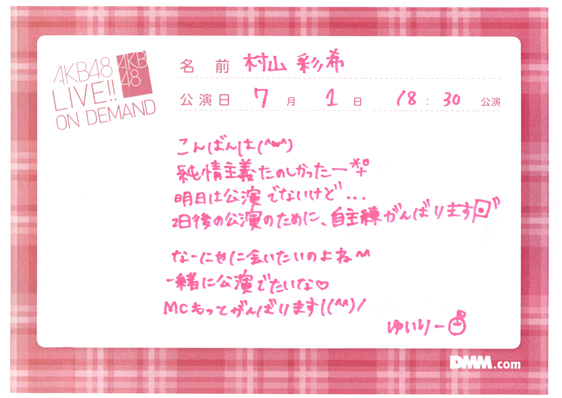 AKB48
LIVE!!
ON DEMAND
AKB
48
名 前 村山 彩希
公演日 7 月 1 日 18 : 30 公演
こんばんは(^^)
純情主義たのしかったー
明日は公演でないけど...
2日後の公演のために、自主練がんばります
なーにゃに会いたいのよね〜
一緒に公演でたいな♡
MCもっとがんばります!(^^)/
ゆいりー
DMM.com